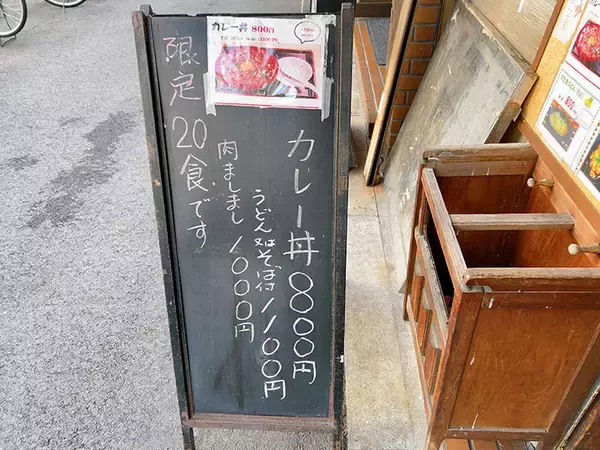 カレー丼 800円
カレー丼 800円
うどん又はそば付 1100円
肉ましまし 1000円
限定20食です
800